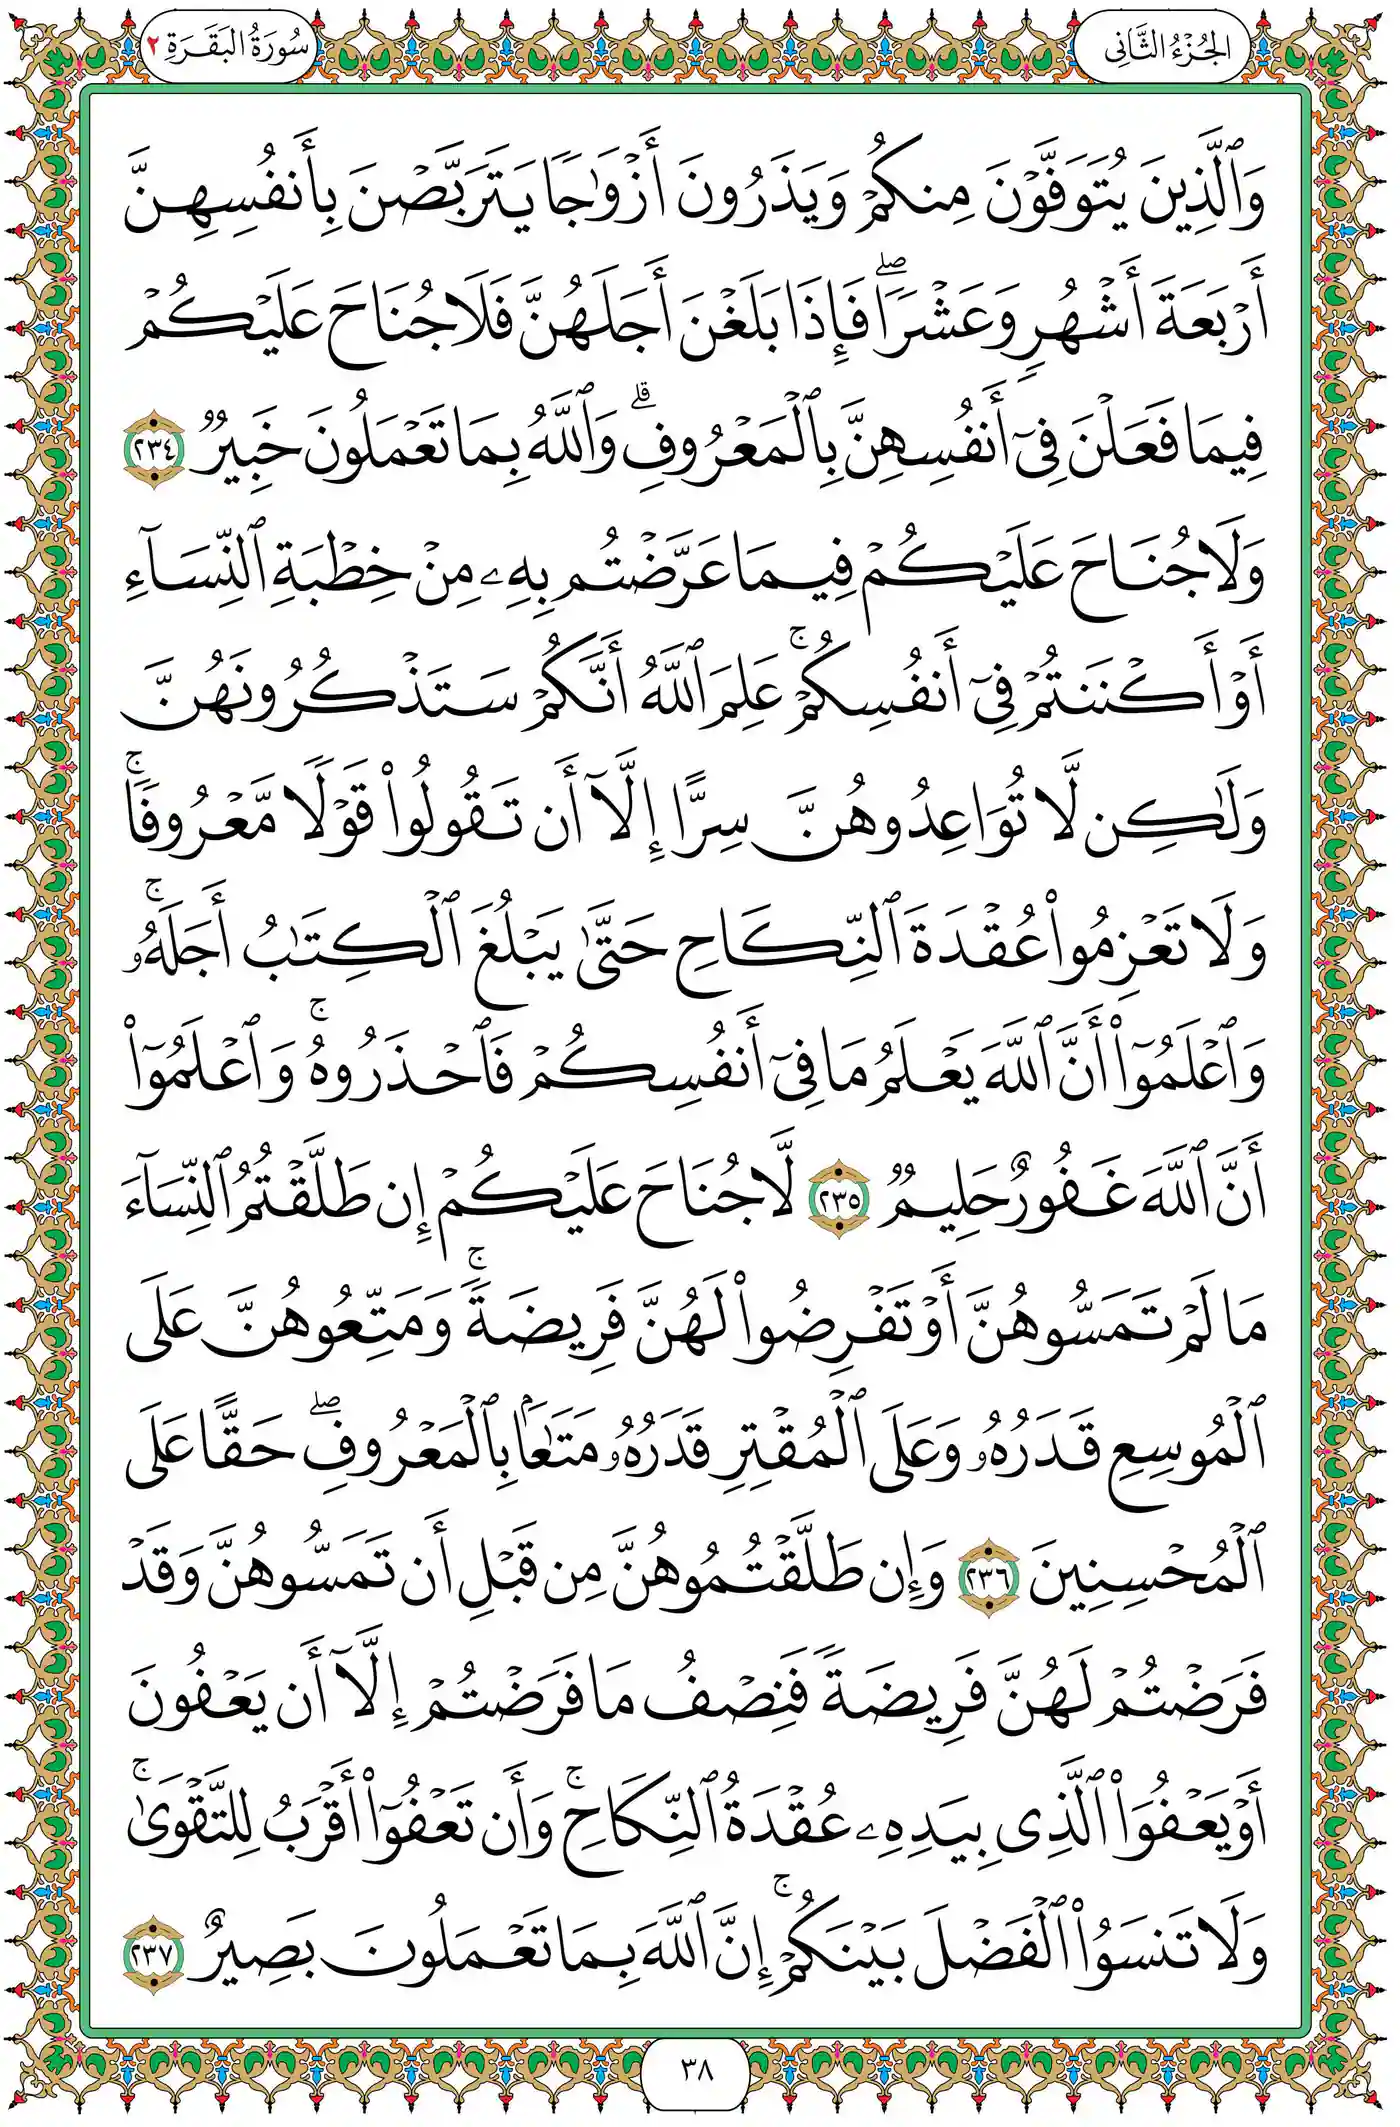 الجُزْءُ الثَّانِي
سُورَةُ البَقَرَةِ ٢
وَٱلَّذِينَ يُتَوَفَّوْنَ مِنكُمْ وَيَذَرُونَ أَزْوَٰجًا يَتَرَبَّصْنَ بِأَنفُسِهِنَّ
أَرْبَعَةَ أَشْهُرٍ وَعَشْرًا ۖ فَإِذَا بَلَغْنَ أَجَلَهُنَّ فَلَا جُنَاحَ عَلَيْكُمْ
فِيمَا فَعَلْنَ فِىٓ أَنفُسِهِنَّ بِٱلْمَعْرُوفِ ۗ وَٱللَّهُ بِمَا تَعْمَلُونَ خَبِيرٌ ٢٣٤
وَلَا جُنَاحَ عَلَيْكُمْ فِيمَا عَرَّضْتُم بِهِۦ مِنْ خِطْبَةِ ٱلنِّسَآءِ
أَوْ أَكْنَنتُمْ فِىٓ أَنفُسِكُمْ ۚ عَلِمَ ٱللَّهُ أَنَّكُمْ سَتَذْكُرُونَهُنَّ
وَلَٰكِن لَّا تُوَاعِدُوهُنَّ سِرًّا إِلَّآ أَن تَقُولُوا۟ قَوْلًا مَّعْرُوفًا ۚ
وَلَا تَعْزِمُوا۟ عُقْدَةَ ٱلنِّكَاحِ حَتَّىٰ يَبْلُغَ ٱلْكِتَٰبُ أَجَلَهُۥ ۚ
وَٱعْلَمُوٓا۟ أَنَّ ٱللَّهَ يَعْلَمُ مَا فِىٓ أَنفُسِكُمْ فَٱحْذَرُوهُ ۚ وَٱعْلَمُوٓا۟
أَنَّ ٱللَّهَ غَفُورٌ حَلِيمٌ ٢٣٥ لَّا جُنَاحَ عَلَيْكُمْ إِن طَلَّقْتُمُ ٱلنِّسَآءَ
مَا لَمْ تَمَسُّوهُنَّ أَوْ تَفْرِضُوا۟ لَهُنَّ فَرِيضَةً ۚ وَمَتِّعُوهُنَّ عَلَى
ٱلْمُوسِعِ قَدَرُهُۥ وَعَلَى ٱلْمُقْتِرِ قَدَرُهُۥ مَتَٰعًۢا بِٱلْمَعْرُوفِ ۖ حَقًّا عَلَى
ٱلْمُحْسِنِينَ ٢٣٦ وَإِن طَلَّقْتُمُوهُنَّ مِن قَبْلِ أَن تَمَسُّوهُنَّ وَقَدْ
فَرَضْتُمْ لَهُنَّ فَرِيضَةً فَنِصْفُ مَا فَرَضْتُمْ إِلَّآ أَن يَعْفُونَ
أَوْ يَعْفُوَا۟ ٱلَّذِى بِيَدِهِۦ عُقْدَةُ ٱلنِّكَاحِ ۚ وَأَن تَعْفُوٓا۟ أَقْرَبُ لِلتَّقْوَىٰ ۚ
وَلَا تَنسَوُا۟ ٱلْفَضْلَ بَيْنَكُمْ ۚ إِنَّ ٱللَّهَ بِمَا تَعْمَلُونَ بَصِيرٌ ٢٣٧
٣٨